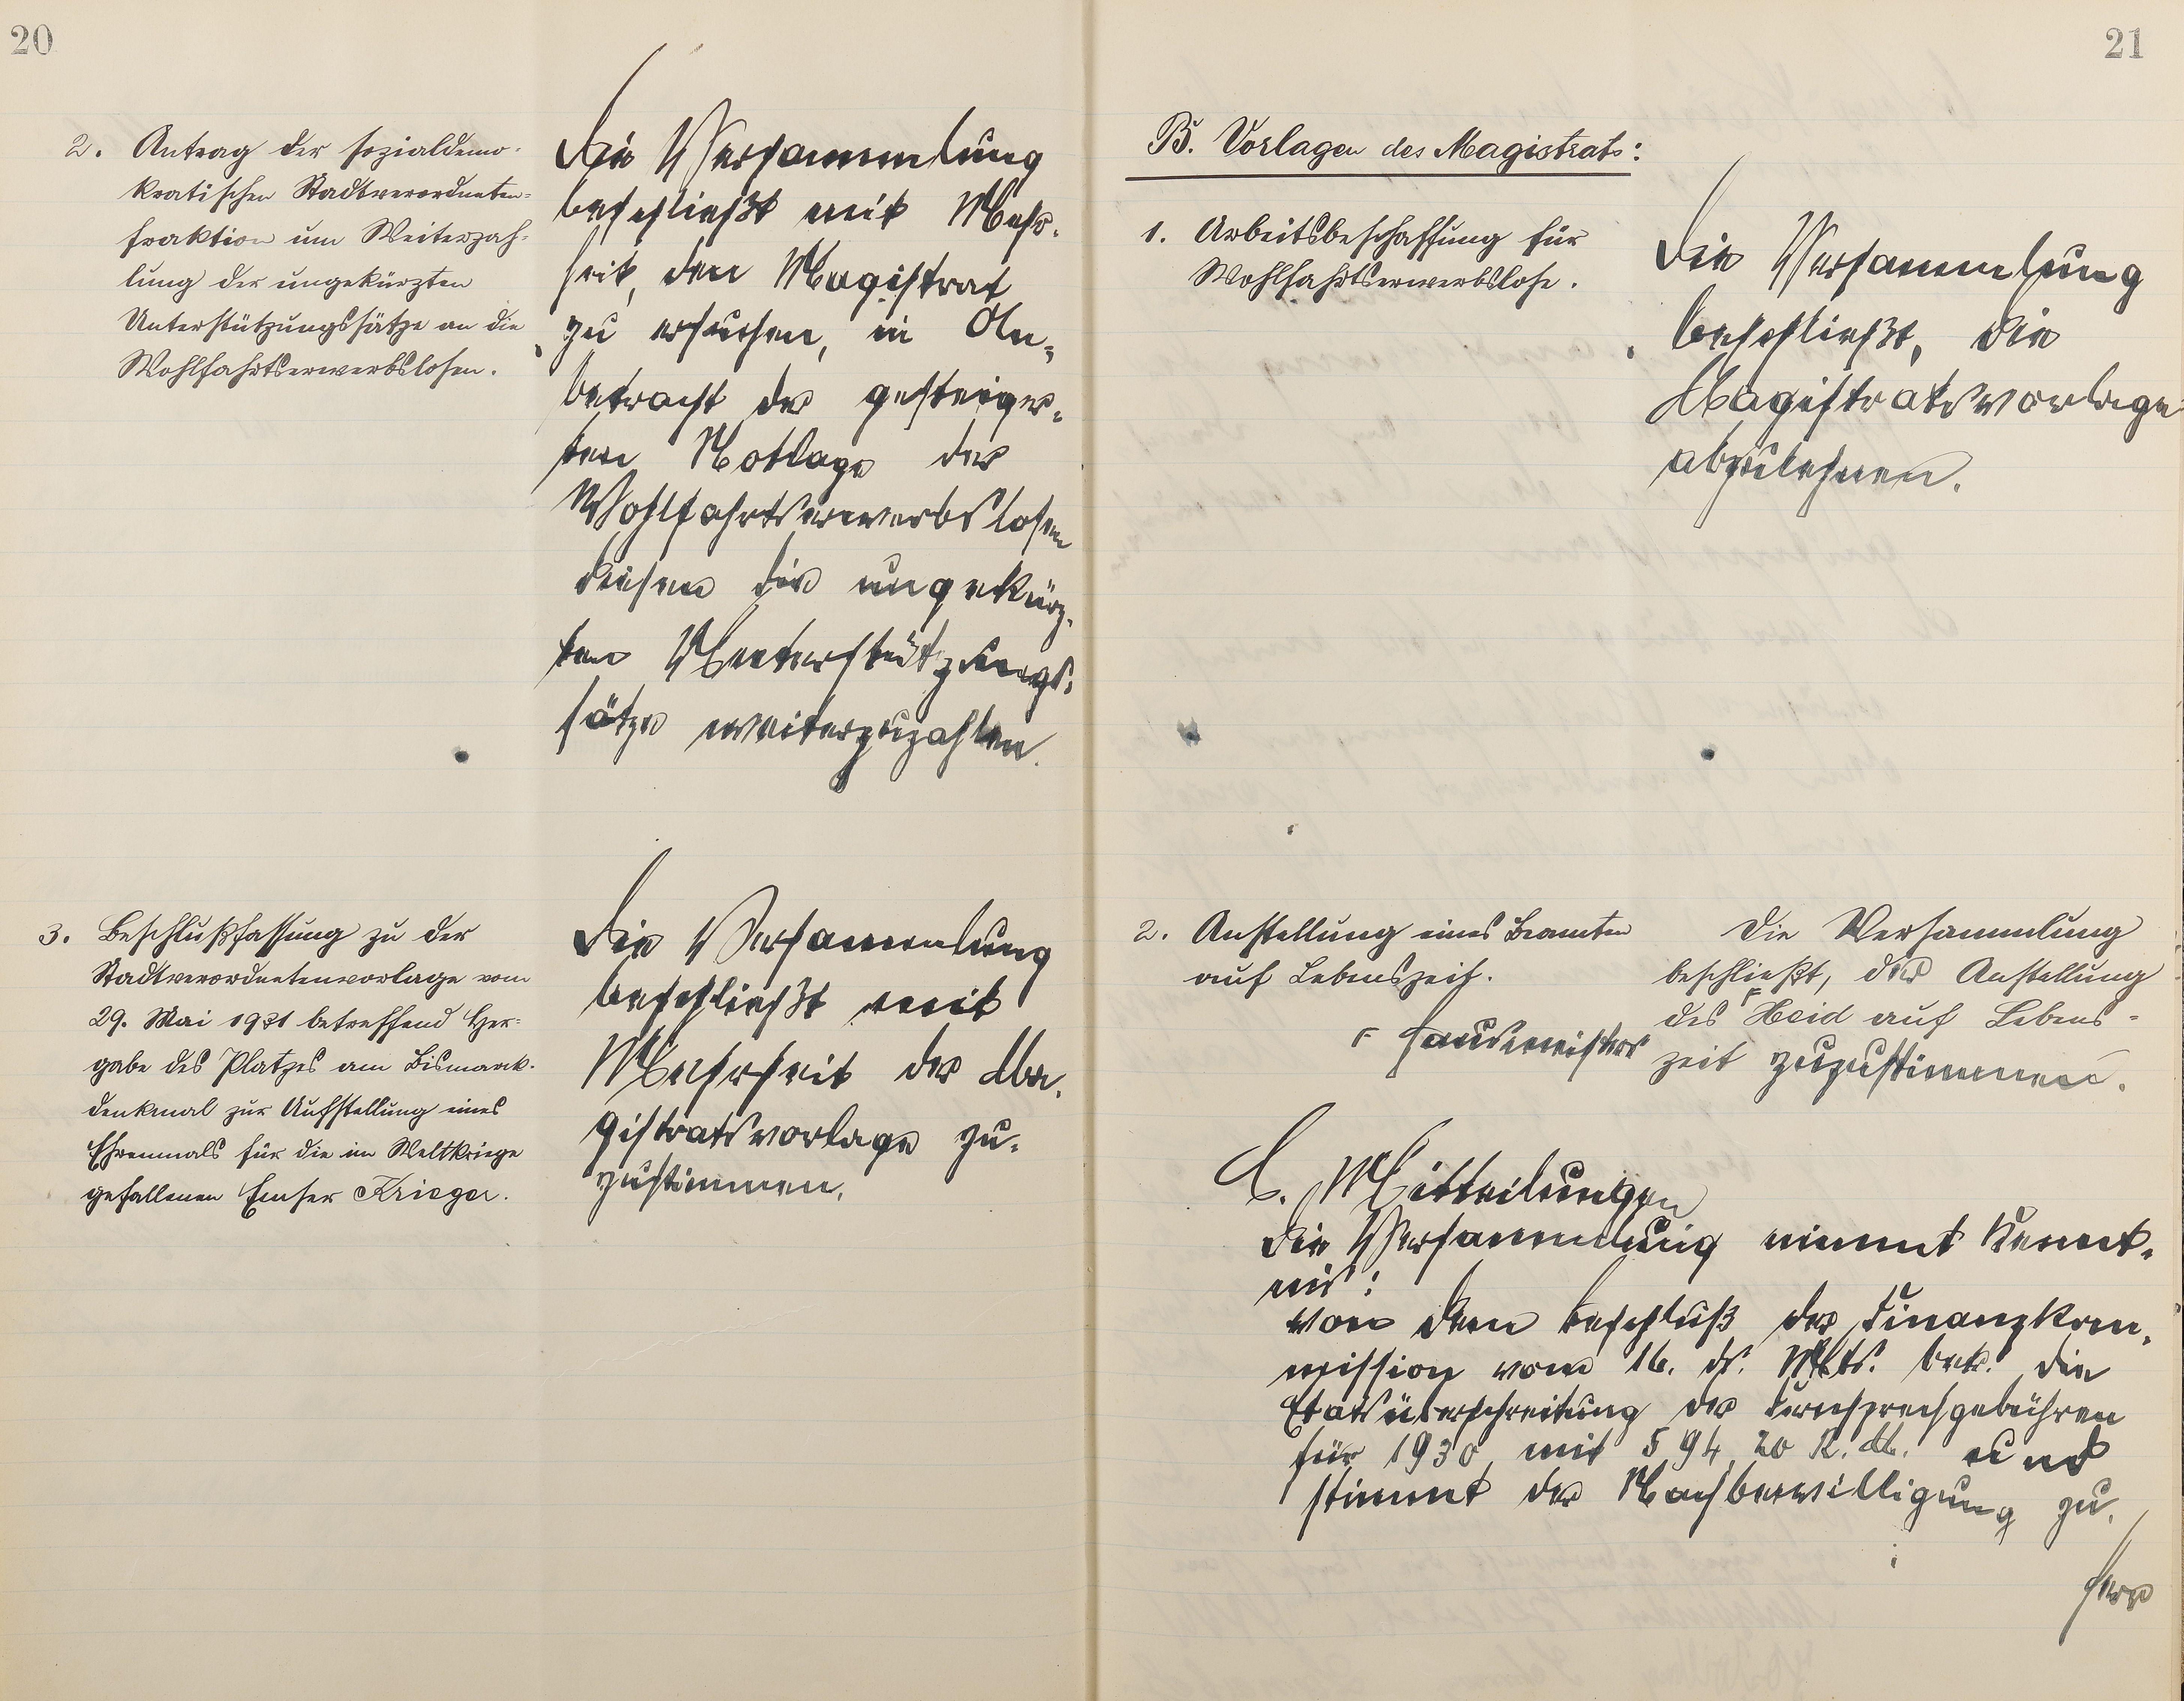 20
2. Antrag der sozialdemo-
kratischen Stadtverordneten-
fraktion um Weiterzah-
lung der ungekürzten
Unterstützungssätze an die
Wohlfahrtserwerbslosen.
Die Versammlung
beschließt mit Mehr-
heit, den Magistrat
zu ersuchen, in An-
betracht der gesteiger-
ten Notlage der
Wohlfahrtserwerbslosen
diesen die ungekürz-
ten Unterstützungs-
sätze weiterzuzahlen.
3. Beschlußfassung zu der
Stadtverordnetenvorlage vom
29. Mai 1931 betreffend Her-
gabe des Platzes am Bismarck-
denkmal zur Aufstellung eines
Ehrenmals für die im Weltkriege
gefallenen Emser Krieger.
Die Versammlung
beschließt mit
Mehrheit der Ma-
gistratsvorlage zu-
zustimmen.
21
B. Vorlagen des Magistrats:
1. Arbeitsbeschaffung für
Wohlfahrtserwerbslose.
Die Versammlung
beschließt, die
Magistratsvorlage
abzulehnen.
2. Anstellung eines Beamten
auf Lebenszeit.
Die Versammlung
beschließt, der Anstellung
des Γ Heid auf Lebens-
zeit zuzustimmen.
Γ Hausmeisters
C. Mitteilungen
Die Versammlung nimmt Kennt-
nis:
von dem Beschluß der Finanzkom-
mission vom 16. ds. Mts. betr. die
Etatsüberschreitung der Fernsprechgebühren
für 1930 mit 594,20 R.M. und
stimmt der Nachbewilligung zu.